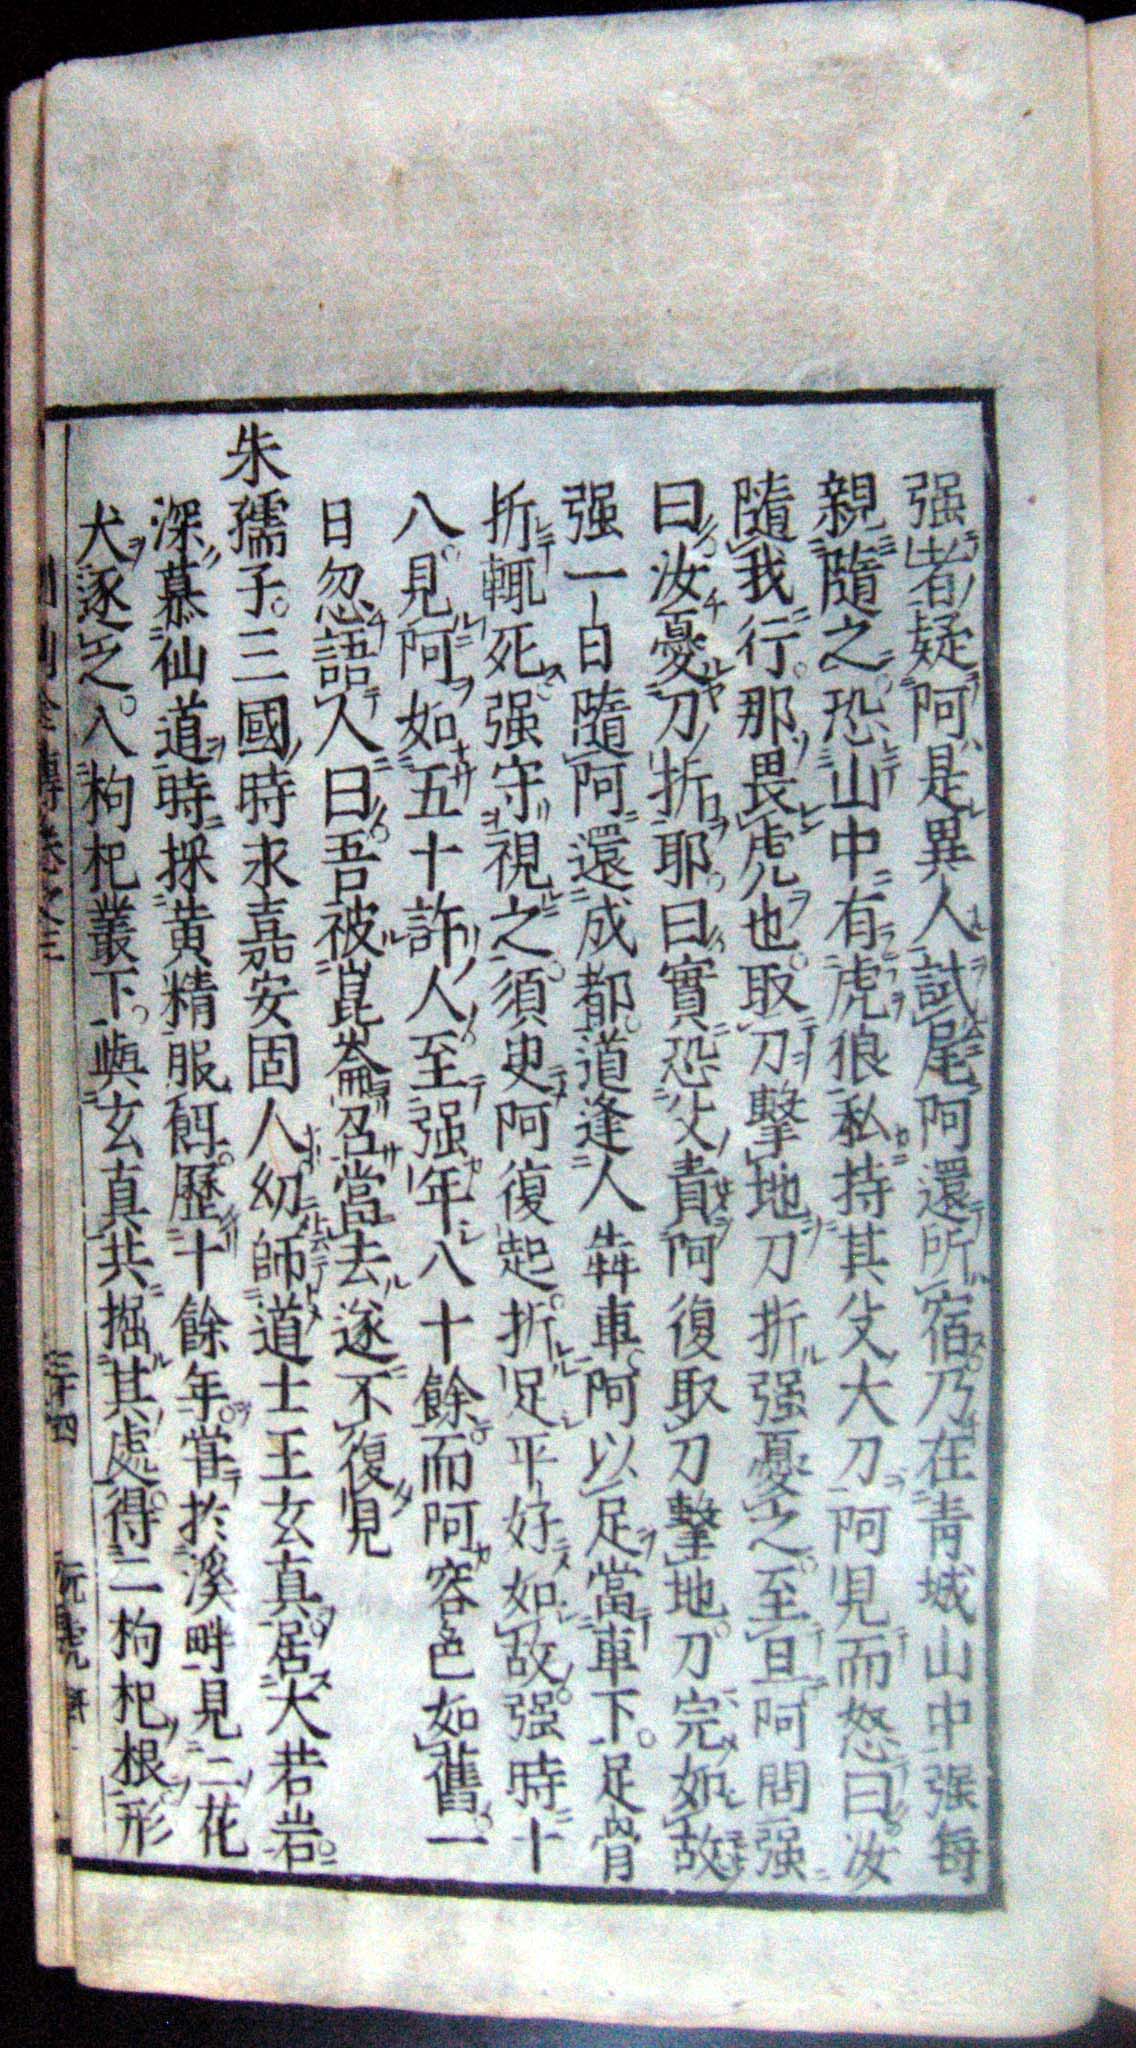 强者疑阿是異人試尾阿還所宿乃在青城山中强每
親隨之恐山中有虎狼私持其父大刀阿見而怒曰汝
隨我行那畏虎也取刀擊地刀折强憂之至旦阿問强
曰汝憂刀折耶曰實恐父責阿復取刀擊地刀完如故
强一日隨阿還成都道逢人犇車阿以足當車下足骨
折輒死强守視之須臾阿復起折足平好如故强時十
八見阿如五十許人至强年八十餘而阿容色如舊一
日忽語人曰吾被崑崙召當去遂不復見
朱孺子三國時永嘉安固人幼師道士王玄真居大若岩
深慕仙道時採黄精服餌歷十餘年嘗於溪畔見二花
犬逐之入枸杞叢下與玄真共掘其處得二枸杞根形